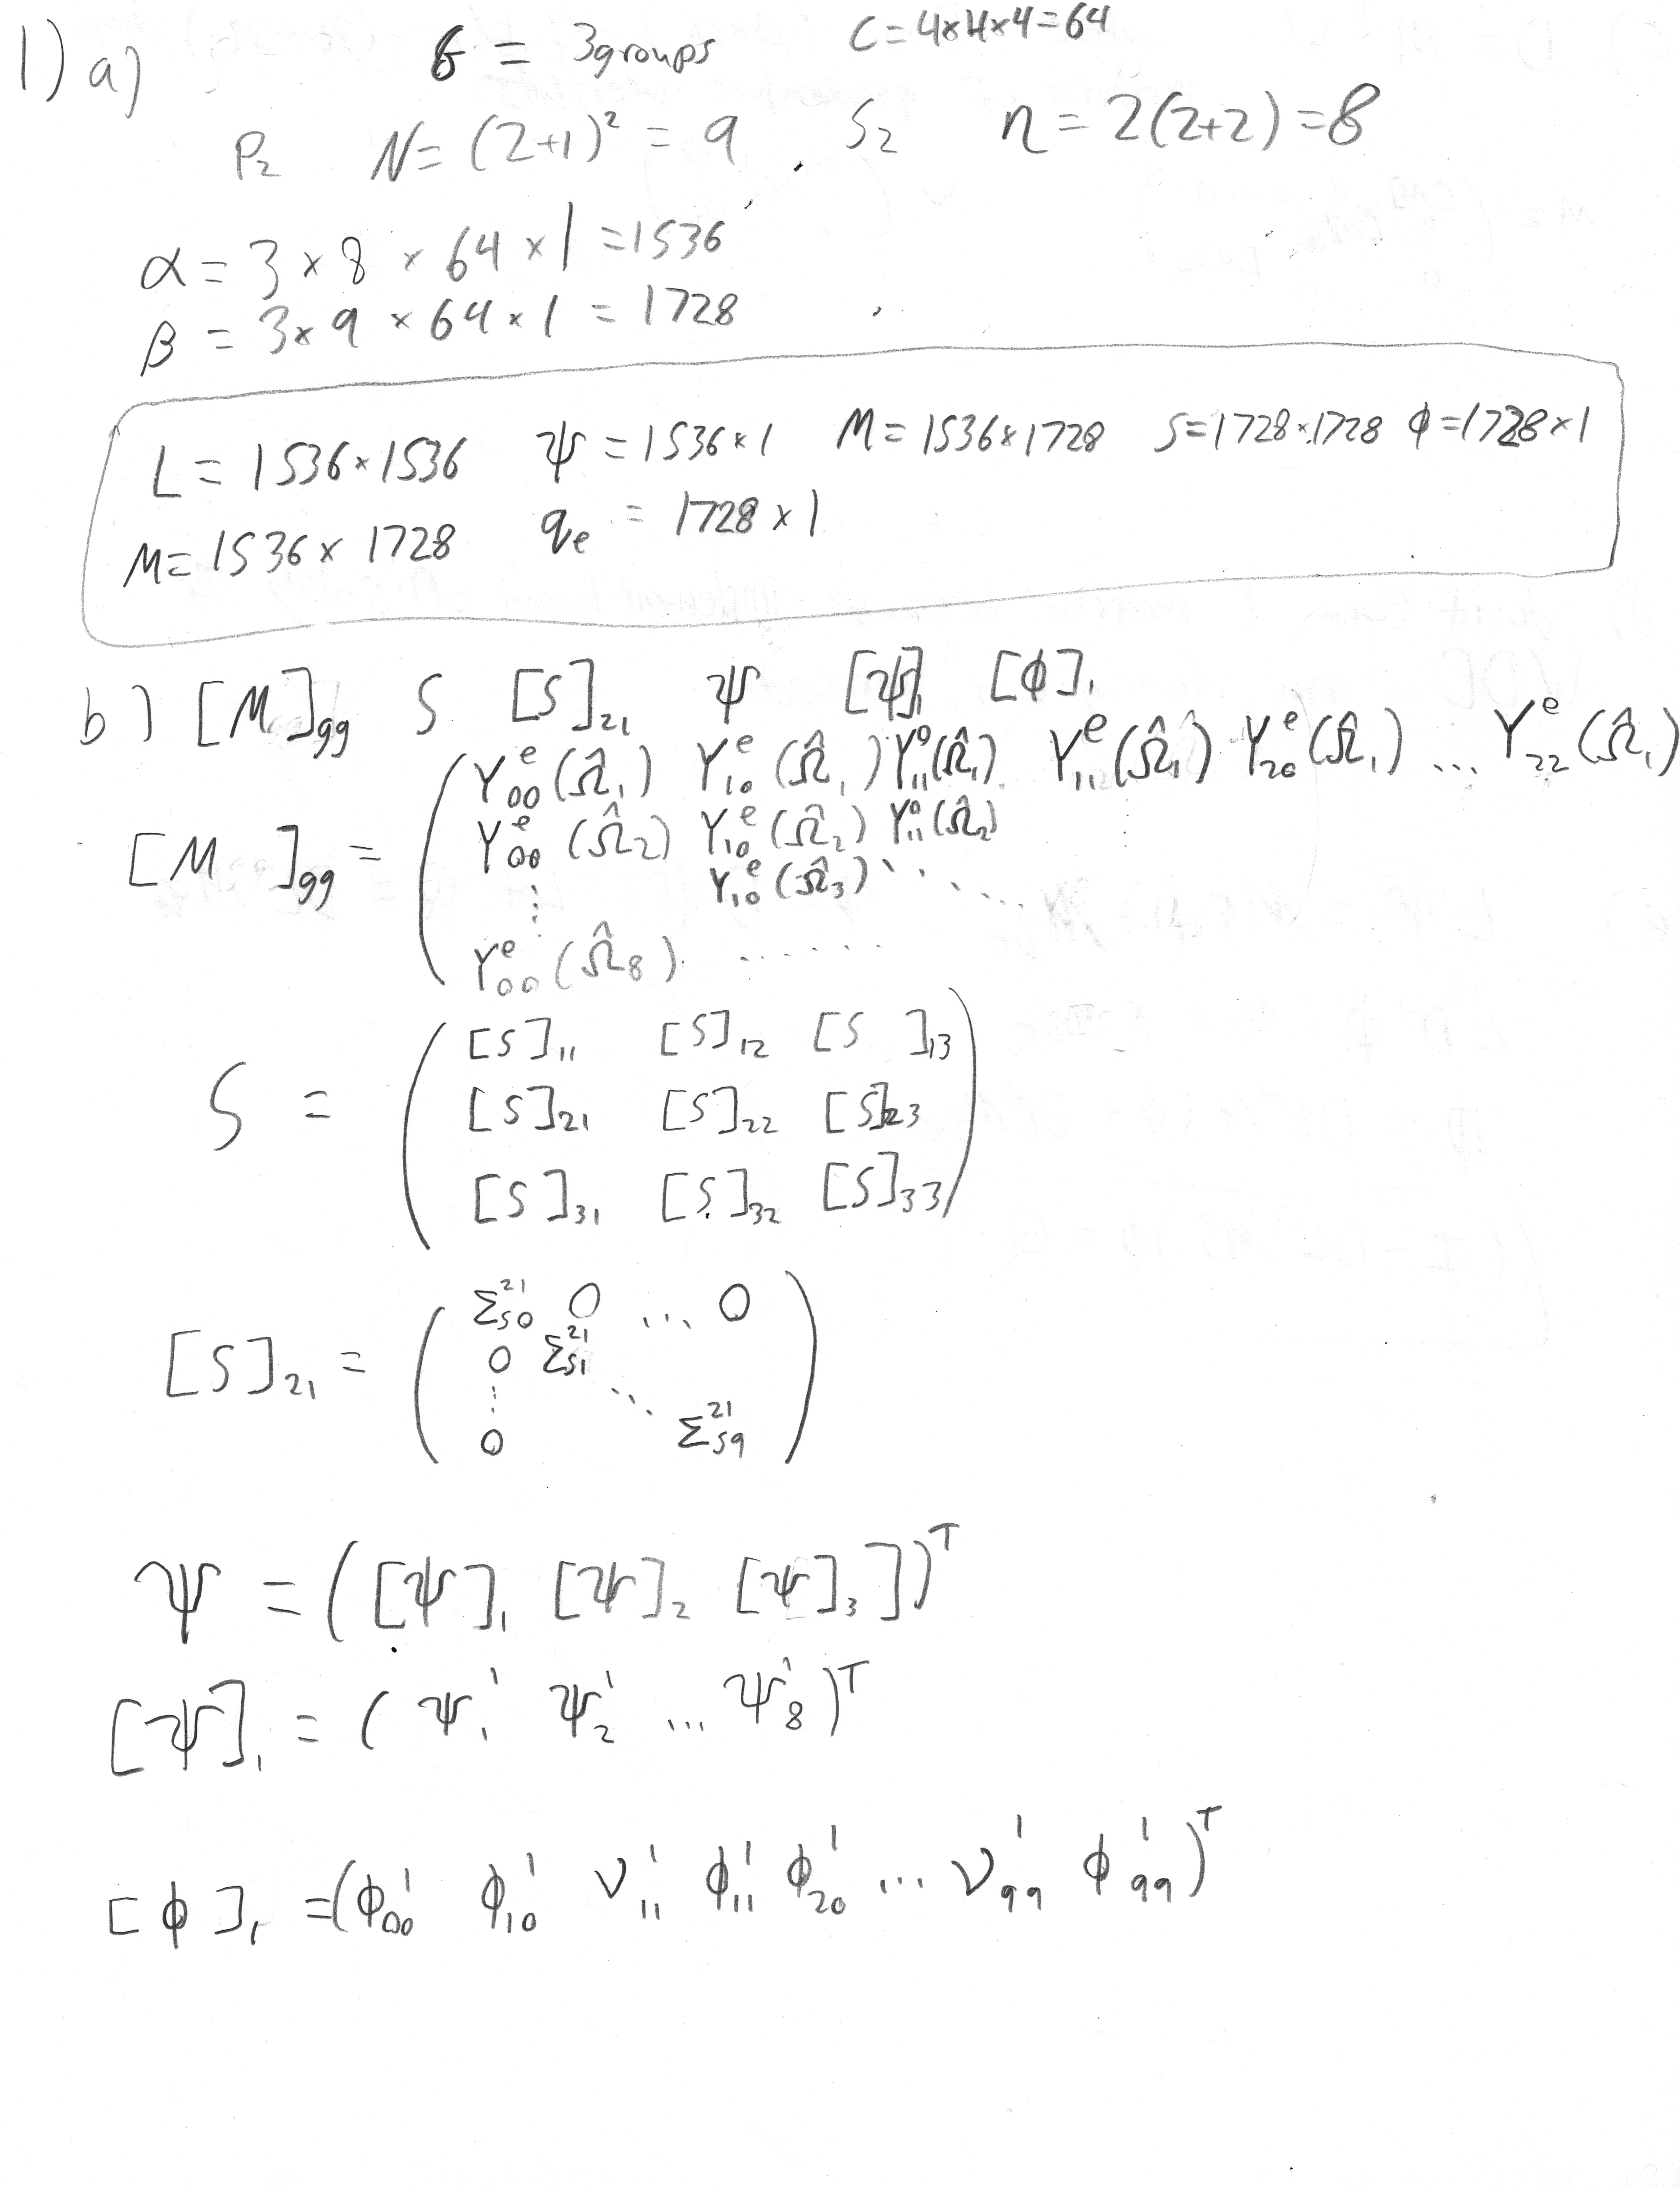 1) a) G = 3 groups C = 4×4×4=64
P₂ N = (2+1)² = 9 , S₂ n = 2(2+2) = 8
α = 3 × 8 × 64 × 1 = 1536
β = 3×9 × 64 × 1 = 1728
L = 1536×1536 ψ = 1536×1 M = 1536×1728 S=1728×1728 ϕ=1728×1
M = 1536 × 1728 qₑ = 1728 × 1
b) [M]gg S [S]₂₁ ψ [ψ]₁ [ϕ]₁
[M]gg = ( Y₀₀ᵉ(Ω̂₁) Y₁₀ᵉ(Ω̂₁) Y₁₁ᵒ(Ω̂₁) Y₁₁ᵉ(Ω̂₁) Y₂₀ᵉ(Ω̂₁) ... Y₂₂ᵉ(Ω̂₁)
Y₀₀ᵉ(Ω̂₂) Y₁₀ᵉ(Ω̂₂) Y₁₁ᵒ(Ω̂₂) ⋮
⋮ Y₁₀ᵉ(Ω̂₃) ⋱
Y₀₀ᵉ(Ω̂₈) ......
S = ( [S]₁₁ [S]₁₂ [S]₁₃
[S]₂₁ [S]₂₂ [S]₂₃
[S]₃₁ [S]₃₂ [S]₃₃ )
[S]₂₁ = ( Σ²¹s0 0 ... 0
0 Σ²¹s1
⋮ ⋱
0 Σ²¹s9 )
ψ = ([ψ]₁ [ψ]₂ [ψ]₃])ᵀ
[ψ]₁ = ( ψ₁¹ ψ₂¹ ... ψ₈¹ )ᵀ
[ϕ]₁ = (ϕ₀₀¹ ϕ₁₀¹ ν₁₁¹ ϕ₁₁¹ ϕ₂₀¹ ... ν₉₉¹ ϕ₉₉¹)ᵀ